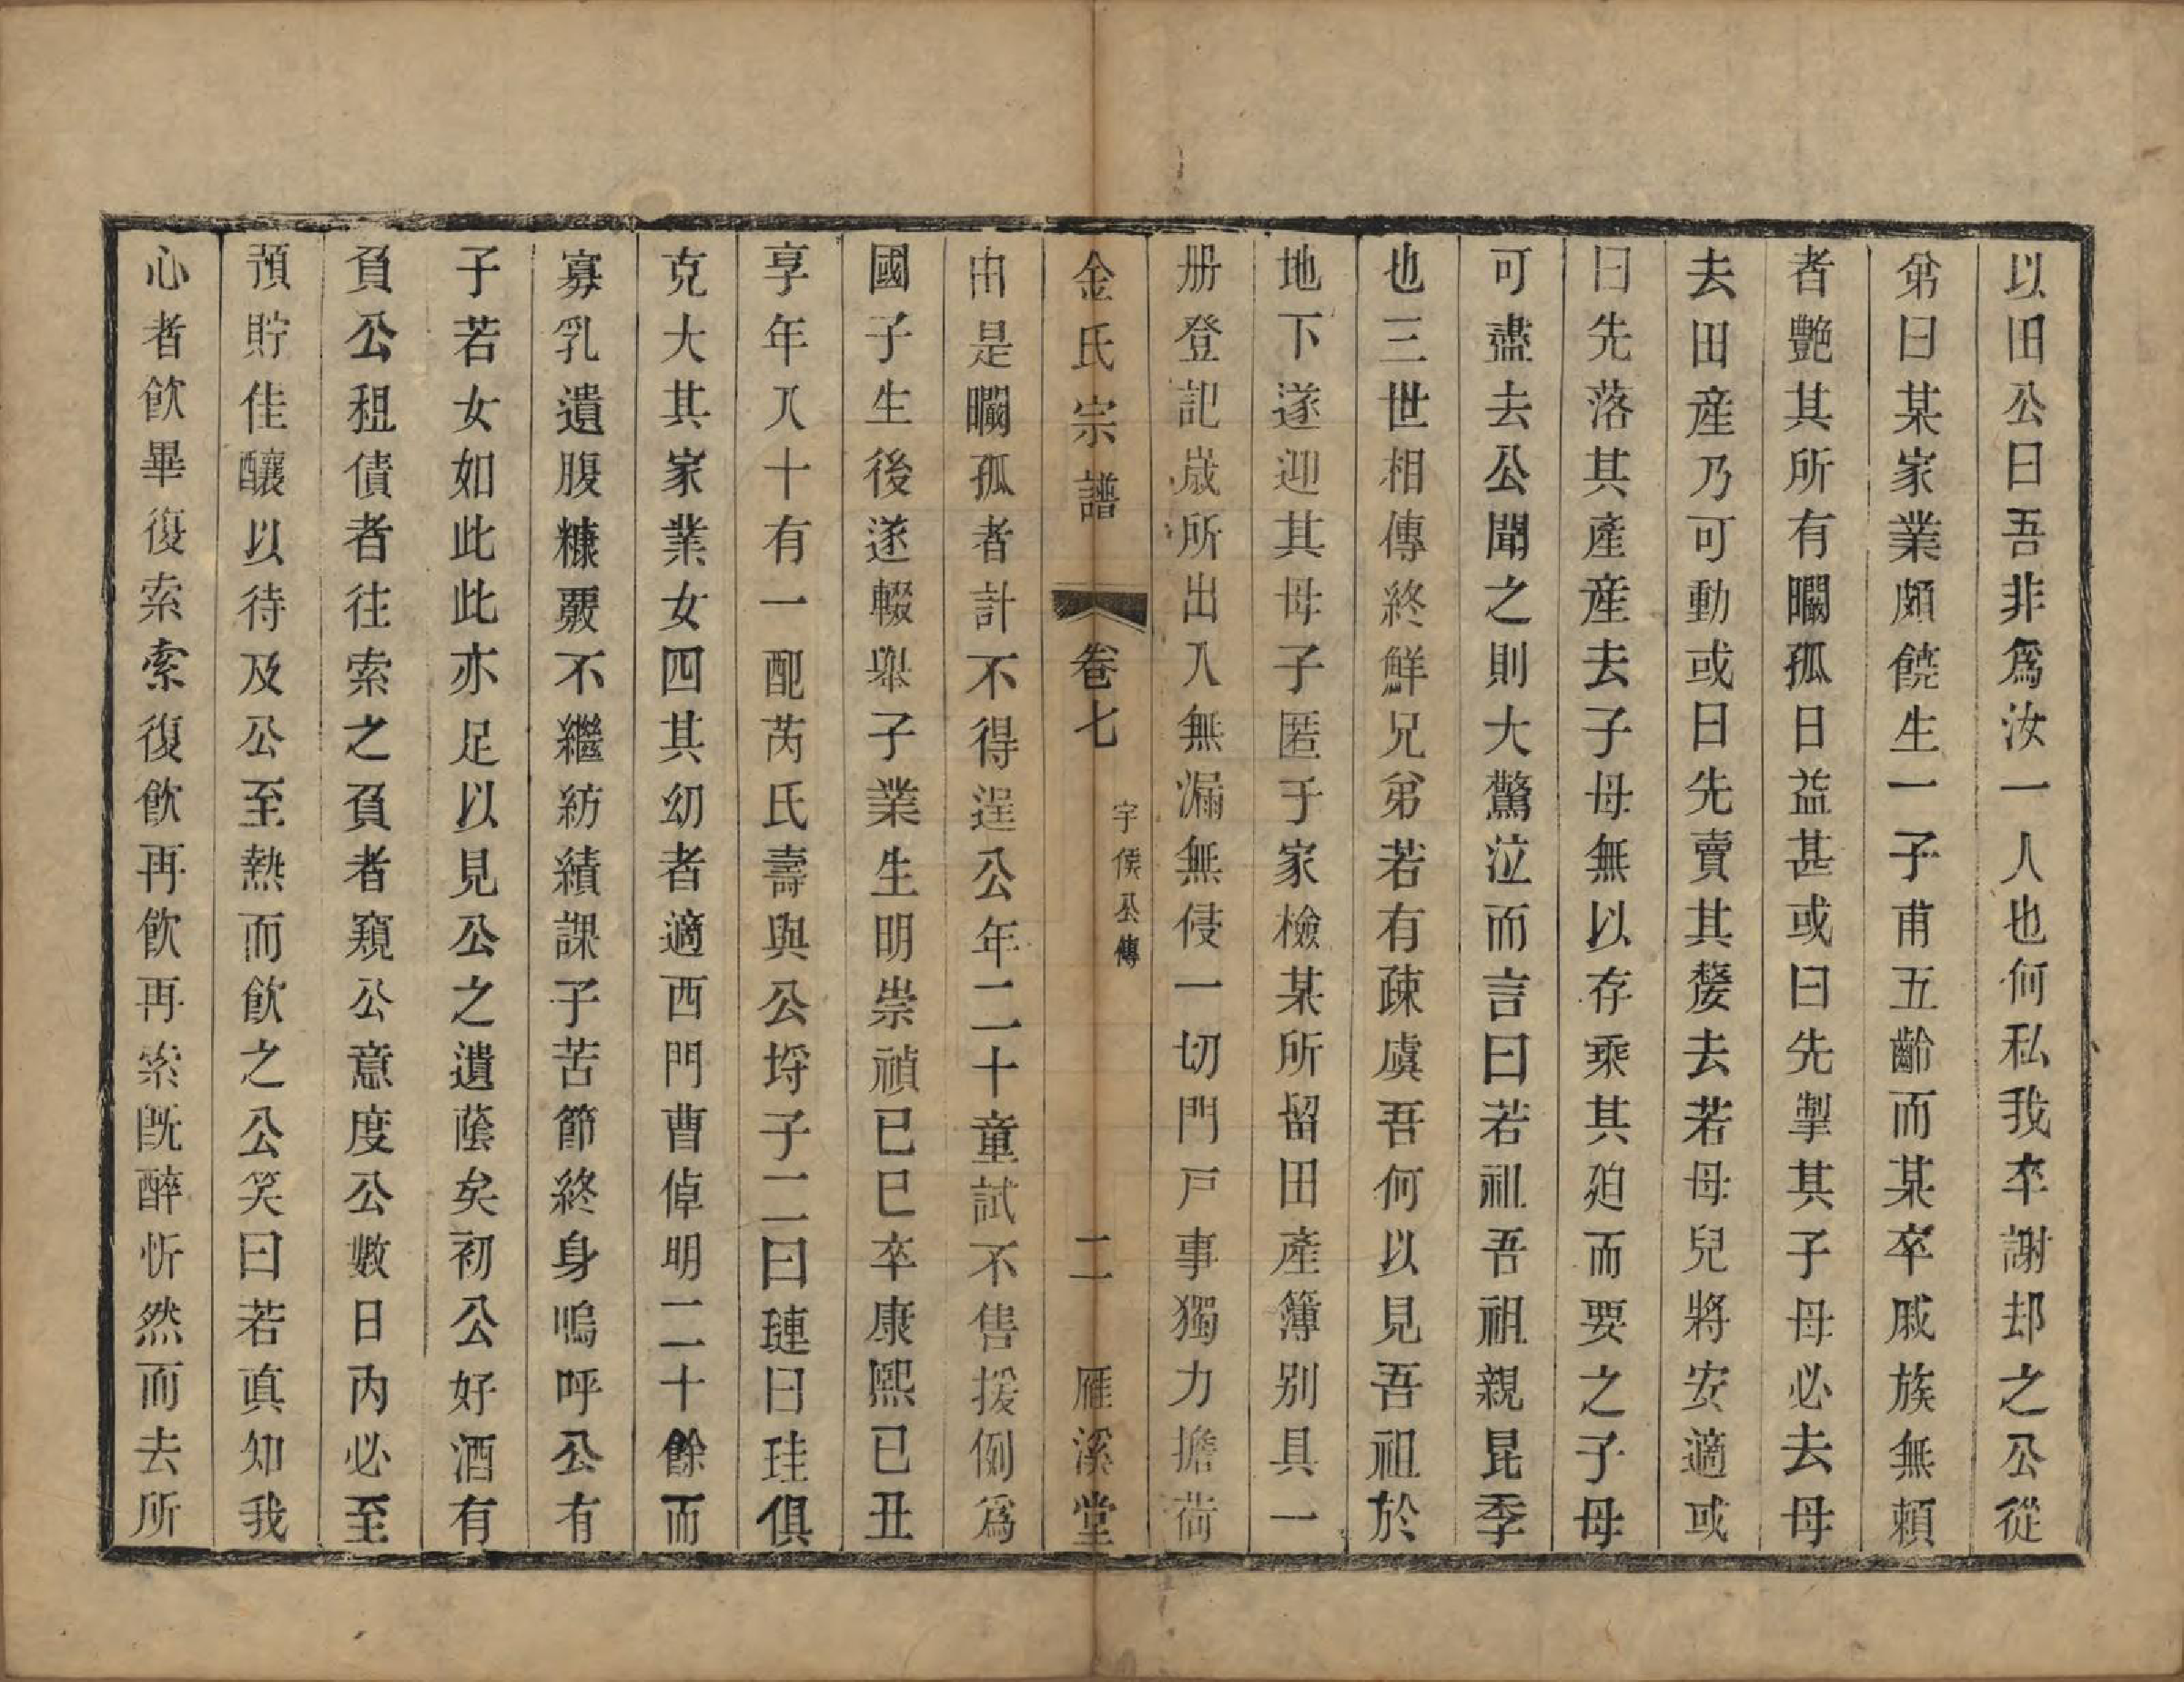 以田公曰吾非爲汝一人也何私我卒謝却之公從
弟曰某家業頗饒生一子甫五齡而某卒戚族無賴
者艷其所有瞯孤日益甚或曰先掣其子母必去母
去田産乃可動或曰先賣其嫠去若母兒將安適或
曰先落其產産去子母無以存乘其殆而要之子母
可盡去公聞之則大驚泣而言曰若祖吾祖親昆季
也三世相傳終鮮兄弟若有疎虞吾何以見吾祖於
地下遂迎其母子匿于家檢某所留田產簿别具一
册登記歲所出入無漏無侵一切門戸事獨力擔荷
金氏宗譜 卷七 宇侯公傳 二 雁溪堂
由是瞯孤者計不得逞公年二十童試不售援例爲
國子生後遂輟舉子業生明崇禎己巳卒康熙己丑
享年八十有一配芮氏壽與公埒子二曰璉曰珪俱
克大其家業女四其㓜者適西門曹倬明二十餘而
寡乳遺腹糠覈不繼紡績課子苦節終身嗚呼公有
子若女如此此亦足以見公之遺蔭矣初公好酒有
負公租債者往索之負者窺公意度公數日内必至
預貯佳釀以待及公至熱而飮之公笑曰若真知我
心者飮畢復索索復飮再飮再索既醉忻然而去所